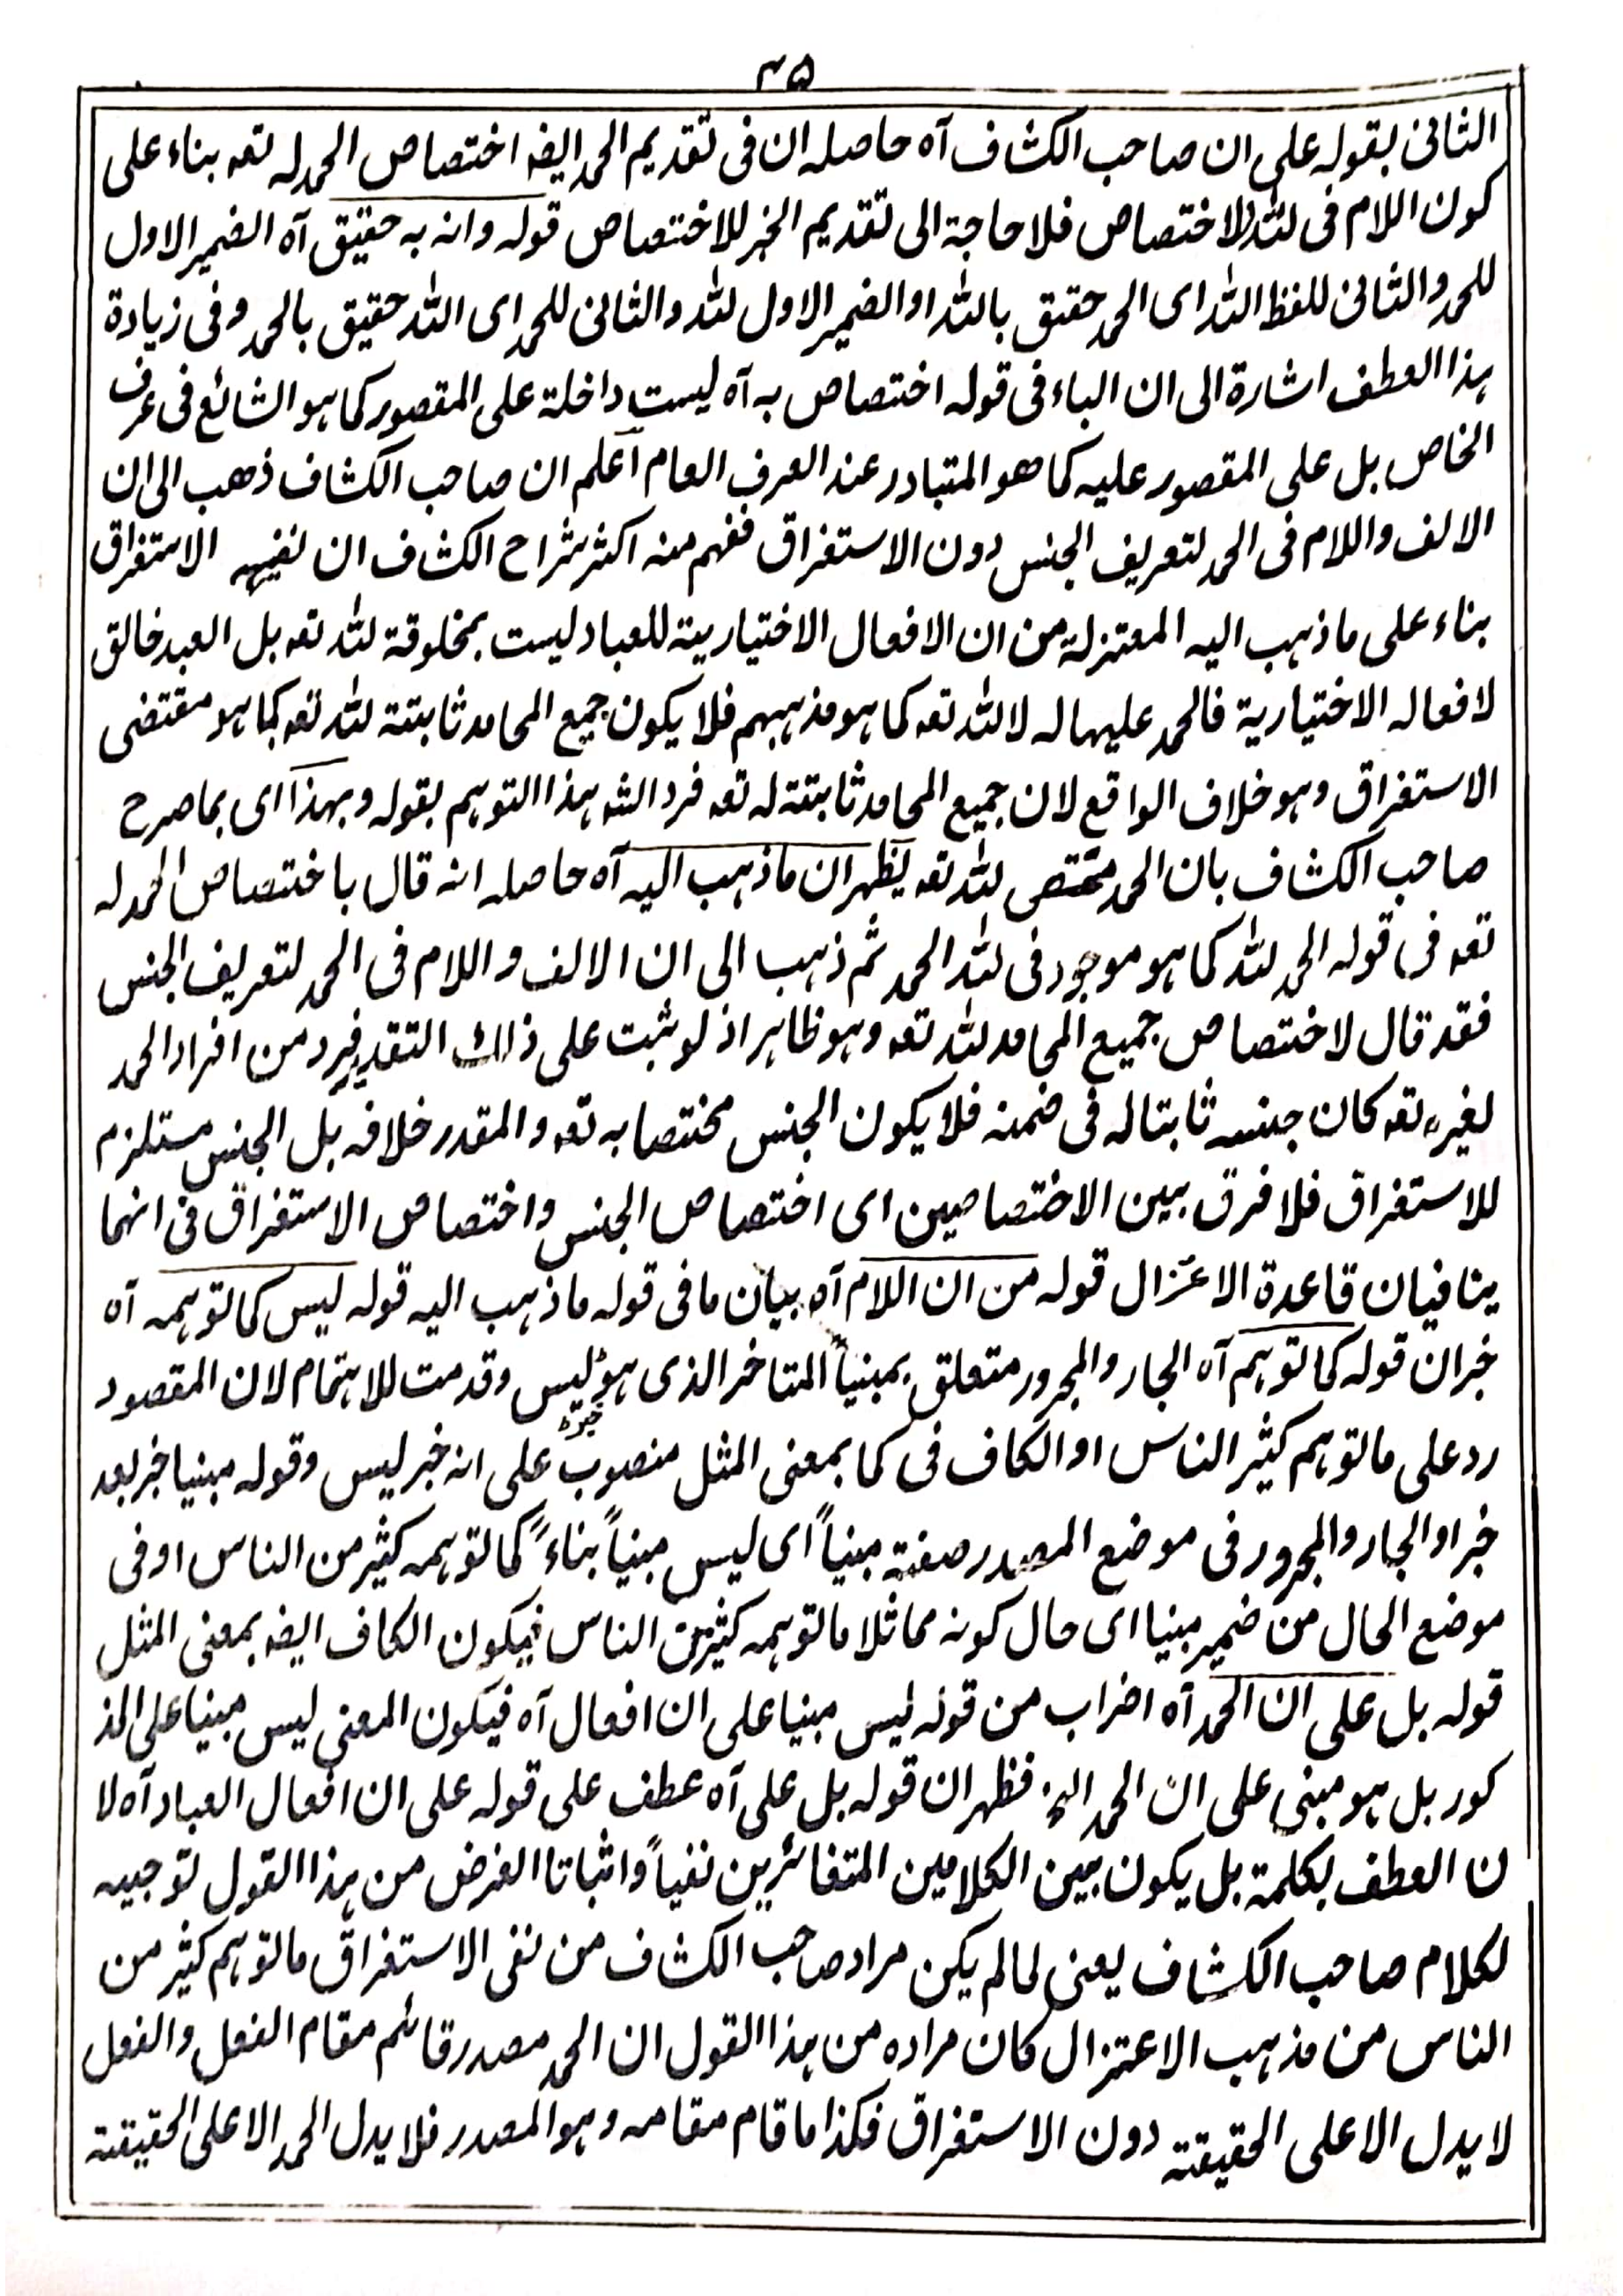 ٣٥
الثانی بقوله علی ان صاحب الکشاف آه حاصله ان فی تقدیم الحمد ایضه اختصاص الحمد له تعه بناء علی
کون اللام فی لله للاختصاص فلا حاجة الی تقدیم الخبر للاختصاص قوله وانه به حقیق آه الضمیر الاول
للحمد والثانی للفظ الله ای الحمد حقیق بالله او الضمیر الاول لله والثانی للحمد ای الله حقیق بالحمد وفی زیادة
هذا العطف اشارة الی ان الباء فی قوله اختصاص به آه لیست داخلة علی المقصور کما هو الشائع فی عرف
الخاص بل علی المقصور علیه کما هو المتبادر عند العرف العام اعلم ان صاحب الکشاف ذهب الی ان
الالف واللام فی الحمد لتعریف الجنس دون الاستغراق ففهم منه اکثر شراح الکشاف ان نفیه الاستغراق
بناء علی ما ذهب الیه المعتزلة من ان الافعال الاختیاریة للعباد لیست بمخلوقة لله تعه بل العبد خالق
لافعاله الاختیاریة فالحمد علیها له لا لله تعه کما هو مذهبهم فلا یکون جمیع المحامد ثابتة لله تعه کما هو مقتضی
الاستغراق وهو خلاف الواقع لان جمیع المحامد ثابتة له تعه فرد الشه هذا التوهم بقوله وبهذا ای بما صرح
صاحب الکشاف بان الحمد مختص لله تعه یظهر ان ما ذهب الیه آه حاصله انه قال باختصاص الحمد له
تعه فی قوله الحمد لله کما هو موجود فی لله الحمد ثم ذهب الی ان الالف واللام فی الحمد لتعریف الجنس
فقد قال لاختصاص جمیع المحامد لله تعه وهو ظاهر اذ لو ثبت علی ذلک التقدیر فرد من افراد الحمد
لغیره تعه کان جنسه ثابتا له فی ضمنه فلا یکون الجنس مختصا به تعه والمقدر خلافه بل الجنس مستلزم
للاستغراق فلا فرق بین الاختصاصین ای اختصاص الجنس واختصاص الاستغراق فی انهما
ینافیان قاعدة الاعتزال قوله من ان اللام آه بیان ما فی قوله ما ذهب الیه قوله لیس کما توهمه آه
خبر ان قوله کما توهم آه الجار والمجرور متعلق بمبنیاً المتاخر الذی هو خبر لیس وقدمت للاهتمام لان المقصود
رد علی ما توهم کثیر الناس او الکاف فی کما بمعنی المثل منصوب علی انه خبر لیس وقوله مبنیا خبر بعد
خبر او الجار والمجرور فی موضع المصدر صفة مبنیاً ای لیس مبنیاً بناءً کما توهمه کثیر من الناس او فی
موضع الحال من ضمیر مبنیا ای حال کونه مماثلا ما توهمه کثیر من الناس فیکون الکاف ایضه بمعنی المثل
قوله بل علی ان الحمد آه اضراب من قوله لیس مبنیا علی ان افعال آه فیکون المعنی لیس مبنیا علی المذ
کور بل هو مبنی علی ان الحمد الخ فظهر ان قوله بل علی آه عطف علی قوله علی ان افعال العباد آه لا
ن العطف بکلمة بل یکون بین الکلامین المتغائرین نفیاً واثباتا الغرض من هذا القول توجیه
لکلام صاحب الکشاف یعنی لما لم یکن مراد صاحب الکشاف من نفی الاستغراق ما توهم کثیر من
الناس من مذهب الاعتزال کان مراده من هذا القول ان الحمد مصدر قائم مقام الفعل والفعل
لا یدل الا علی الحقیقة دون الاستغراق فکذا ما قام مقامه وهو المصدر فلا یدل الحمد الا علی الحقیقة